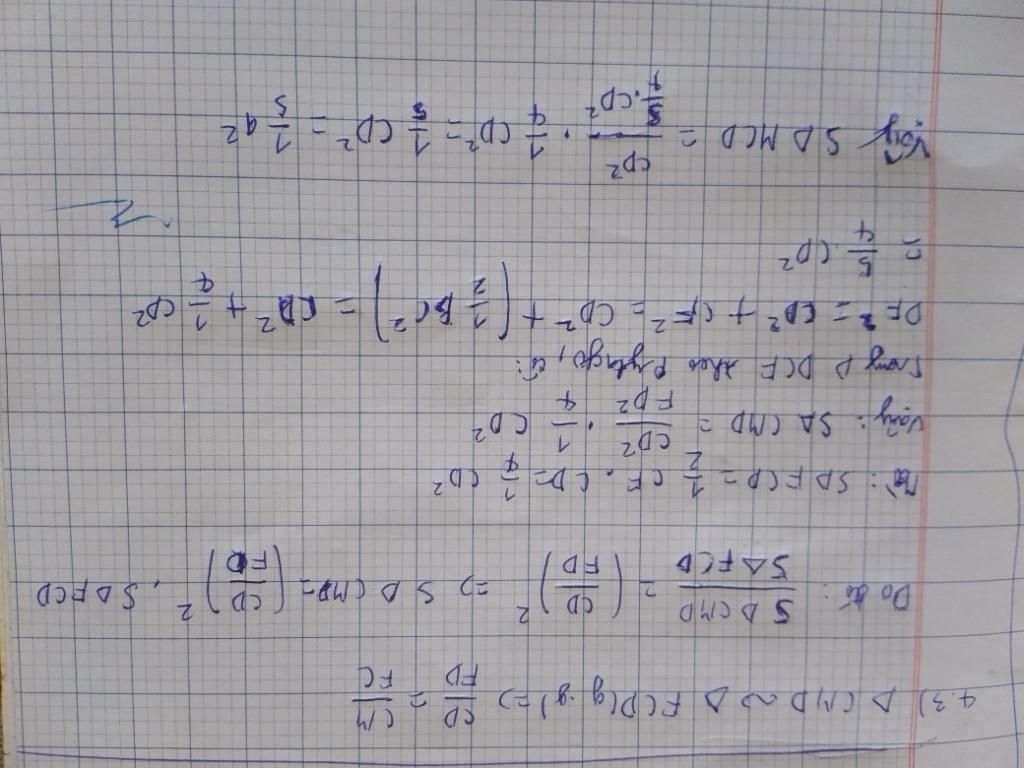 4.3) Δ CMD ∽ Δ FCD (g.g) => CD/FD = CM/FC
Do đó: SΔCMD/SΔFCD = (CD/FD)² => SΔCMD = (CD/FD)² . SΔFCD
Mà: SΔFCD = 1/2 CF . CD = 1/4 CD²
Vậy: SΔCMD = CD²/FD² . 1/4 CD²
Trong Δ DCF theo Pytago, có:
DF² = CD² + CF² = CD² + (1/2 BC²) = CD² + 1/4 CD²
= 5/4 CD²
Vậy SΔMCD = CD²/(5/4 . CD²) . 1/4 CD² = 1/5 CD² = 1/5 a²